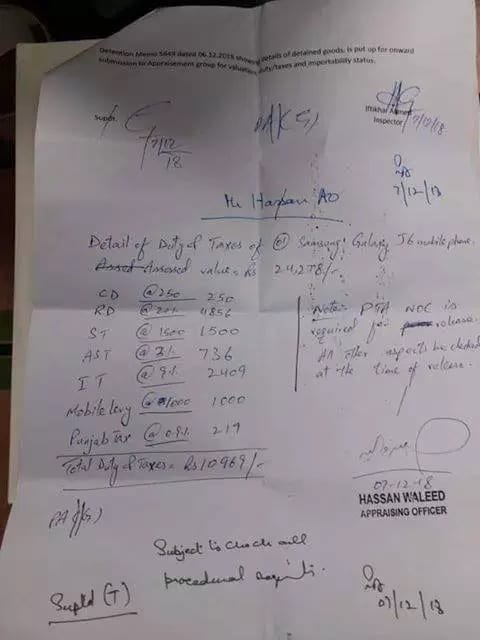 Detention Memo dated 06.12.2018 showing details of detained goods, is put up for onward
submission to Appraisement group for valuation, duty/taxes and importability status.
Supdt.
7/12/18
Iftikhar Ahmed
Inspector
7/12/18
7/12/18
Mr Hassan AO
Detail of Duty & Taxes of 01 Samsung Galaxy J6 mobile phone.
Assessed value = Rs 24,278/-
CD @250 250
RD @20% 4856
ST @1500 1500
AST @3% 736
IT @9% 2409
Mobile levy @1000 1000
Punjab Tax @0.9% 219
Total Duty & Taxes = Rs 10969/-
Note: PTA NOC is
required for release.
All other aspects be checked
at the time of release.
07-12-18
HASSAN WALEED
APPRAISING OFFICER
Subject to check all
procedural
Supdt (T)
07/12/18